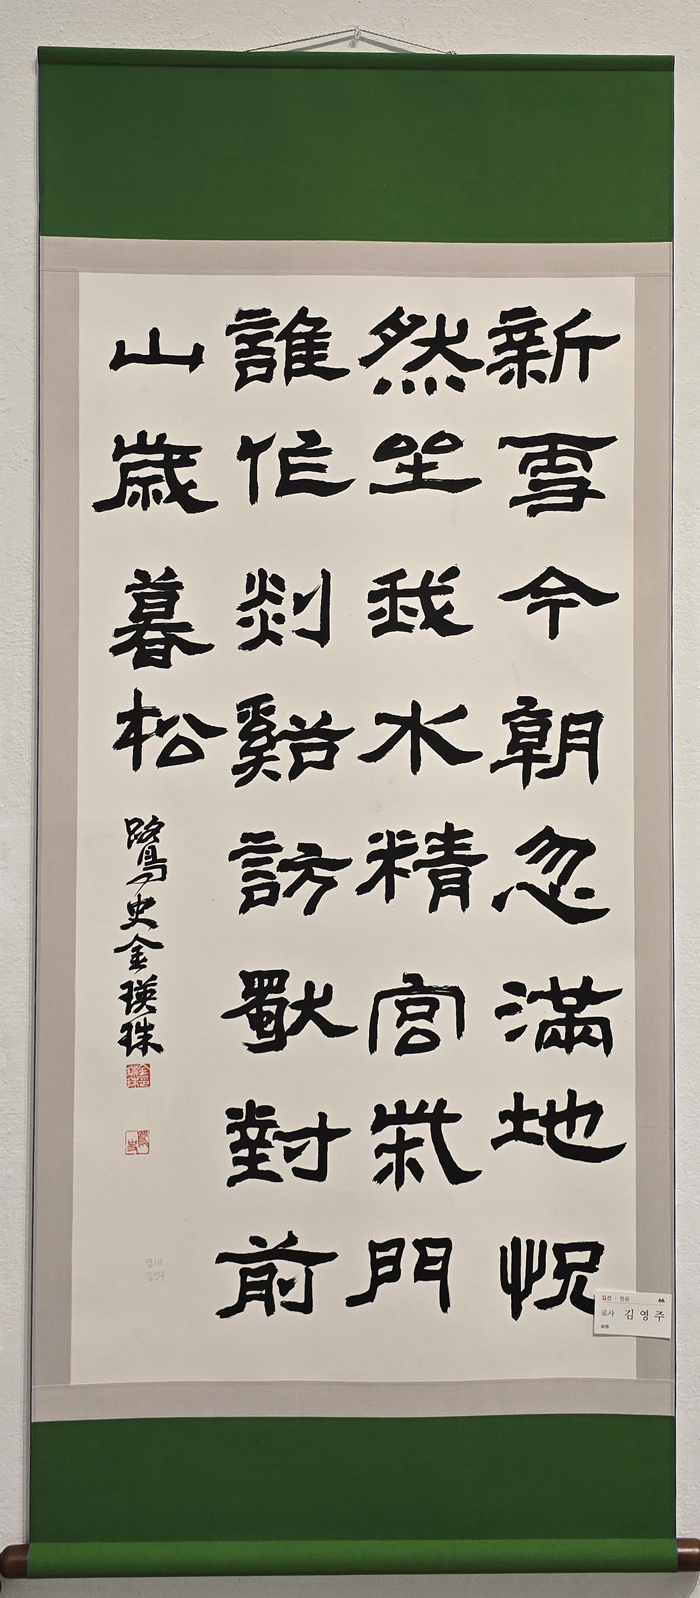 新雪今朝忽滿地怳
然坐我水精宮柴門
誰作剡谿訪獨對前
山歲暮松
鷺史金瑛珠
입선 : 한문
로사 김영주